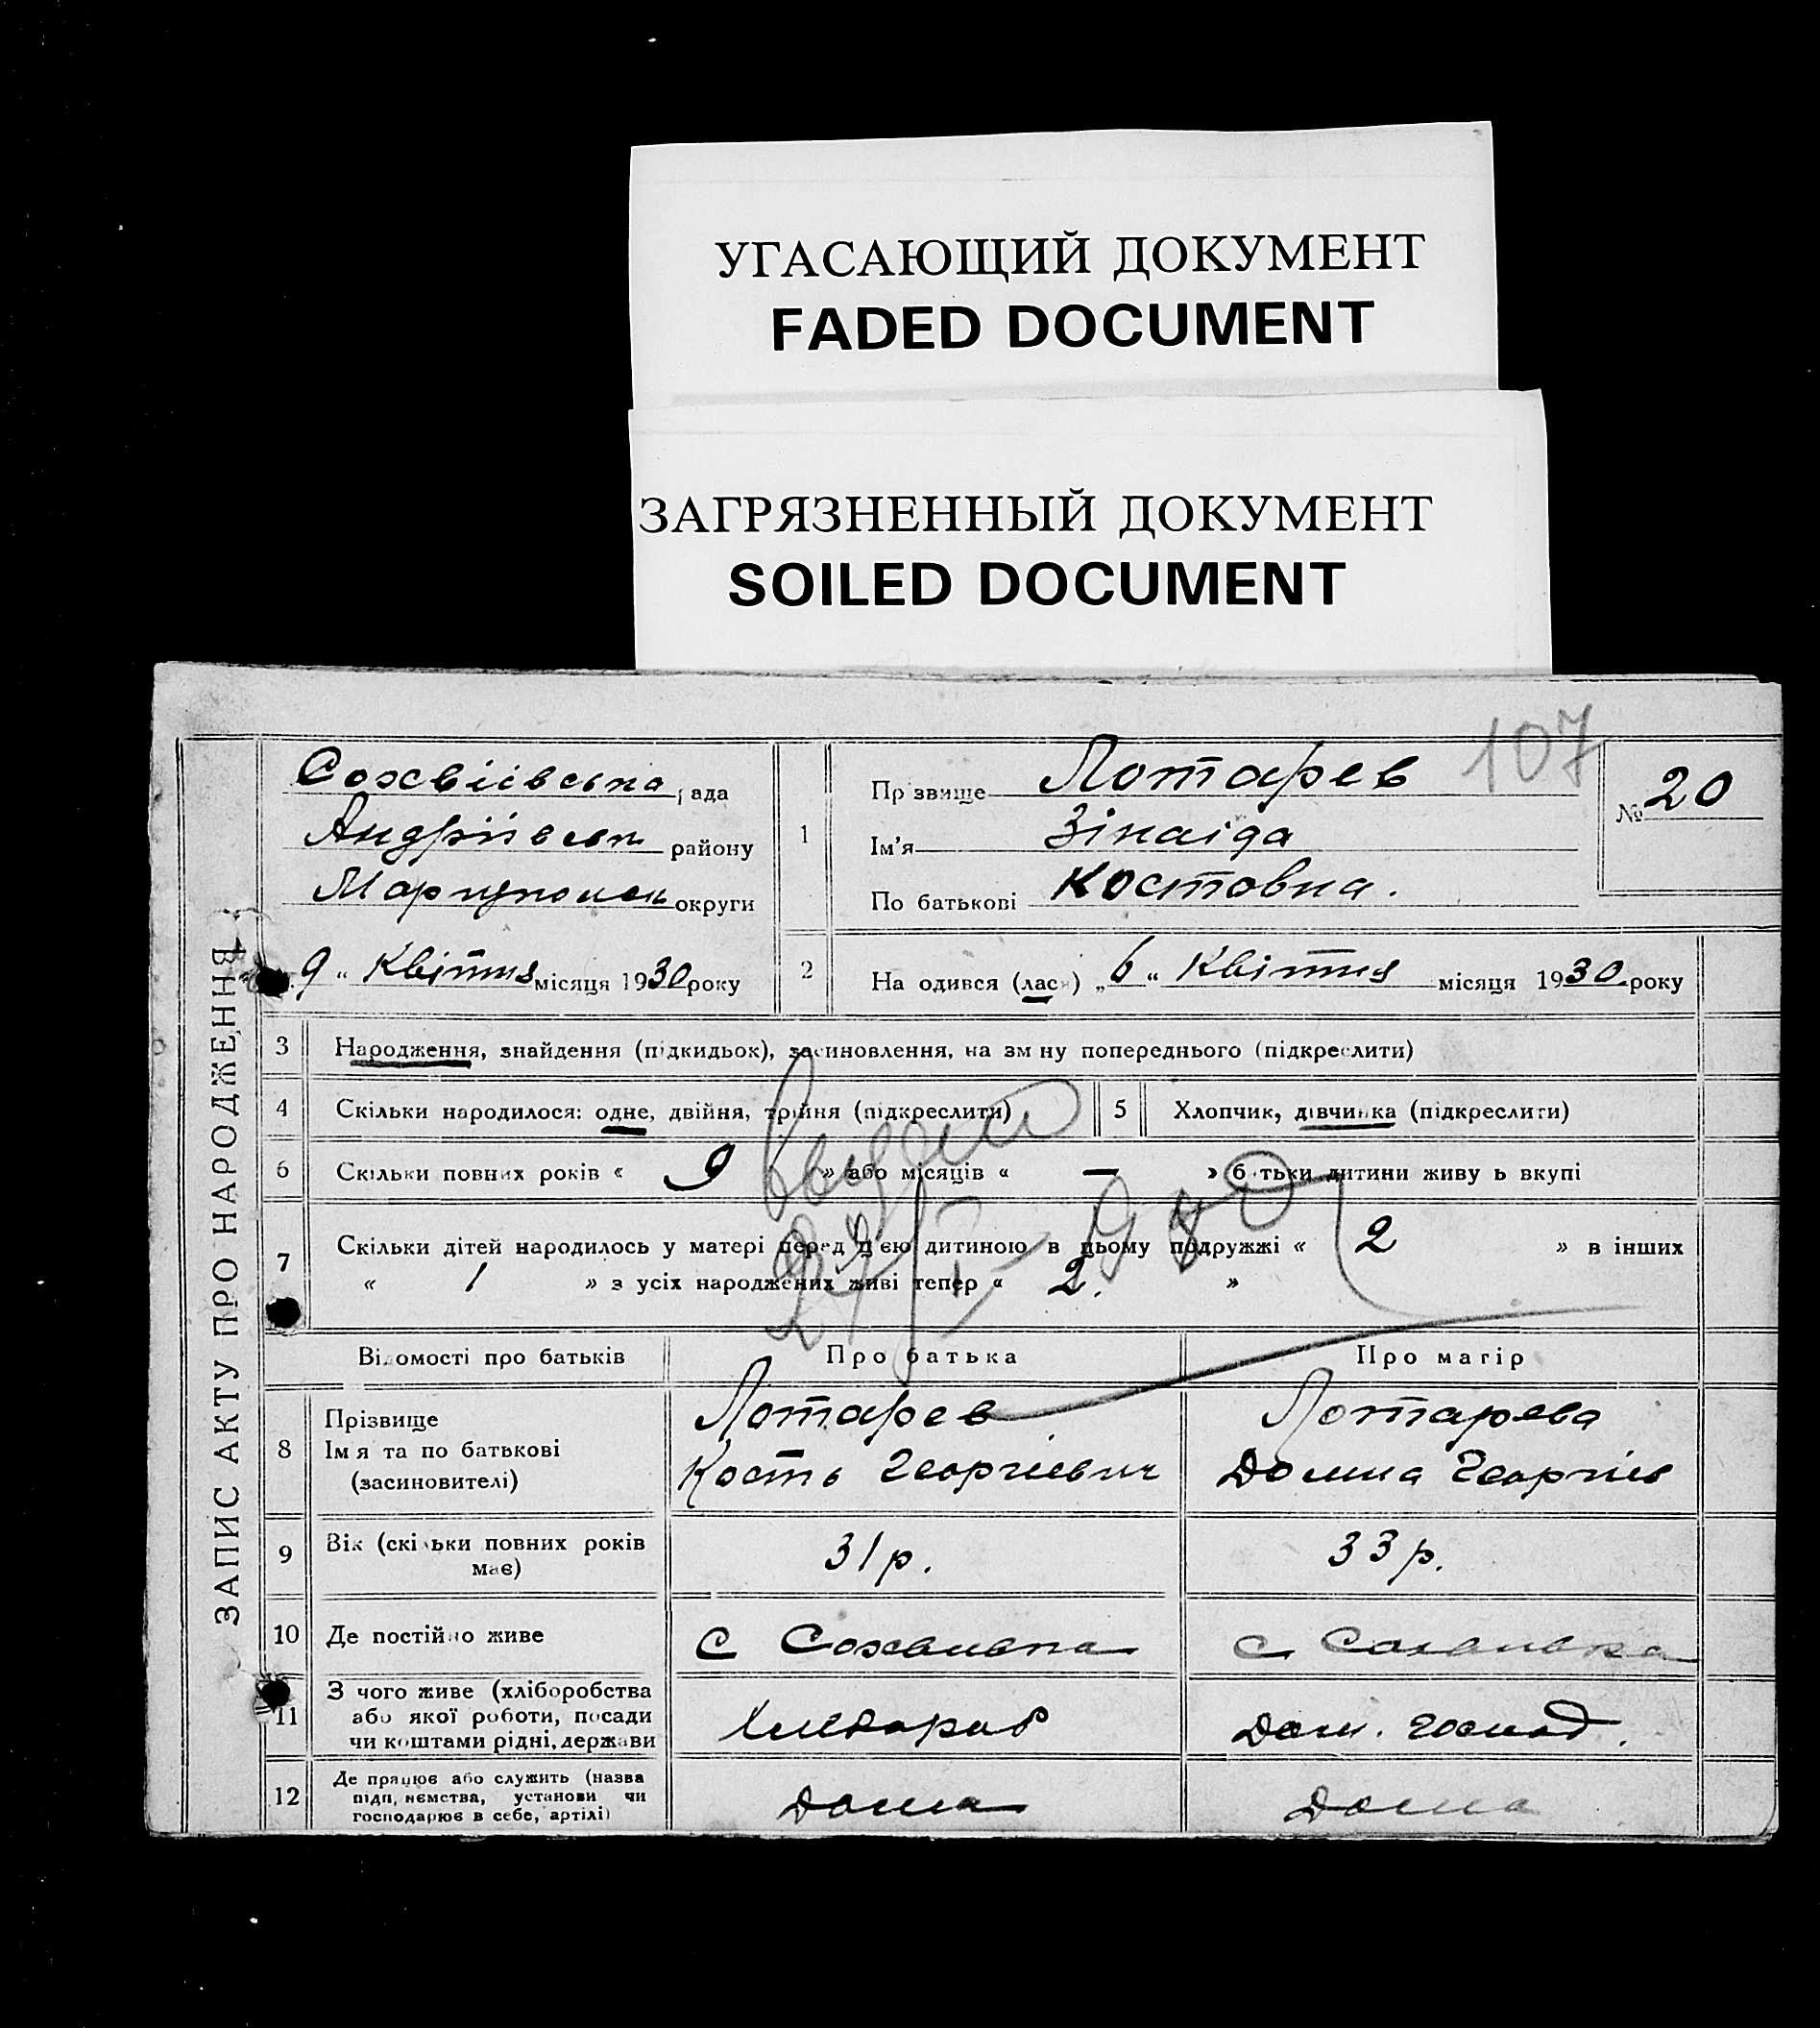 УГАСАЮЩИЙ ДОКУМЕНТ
FADED DOCUMENT
ЗАГРЯЗНЕННЫЙ ДОКУМЕНТ
SOILED DOCUMENT
107
ЗАПИС АКТУ ПРО НАРОДЖЕННЯ
Сохвіівська рада
Андріївськ району
Маріупольськ округи
9 " Квітня місяця 1930 року
1
Прізвище Лотарев
Ім'я Зінаіда
По батькові Костовна.
№ 20
2 На одився (лася) „6" Квітня місяця 1930 року
3 Народження, знайдення (підкидьок), засиновлення, на зміну попереднього (підкреслити)
4 Скільки народилося: одне, двійня, трійня (підкреслити)
5 Хлопчик, дівчинка (підкреслити)
6 Скільки повних років « 9 » або місяців « — » батьки дитини живуть вкупі
7 Скільки дітей народилось у матері перед цією дитиною в цьому подружжі « 2 » в інших
« 1 » з усіх народжених живі тепер « 2. »
Відомості про батьків Про батька Про матір
8 Прізвище
Ім'я та по батькові
(засиновителі)
Лотарев
Кость Георгіевич
Лотарева
Домна Георгіев
9 Вік (скільки повних років
має)
31 р.
33 р.
10 Де постійно живе
с Сохвиевка
с Сохвиевка
11 З чого живе (хліборобства
або якої роботи, посади
чи коштами рідні, держави
Хлебороб
Дом. господ.
12 Де працює або служить (назва
підприємства, установи чи
господарює в себе, артілі)
Дома
Дома